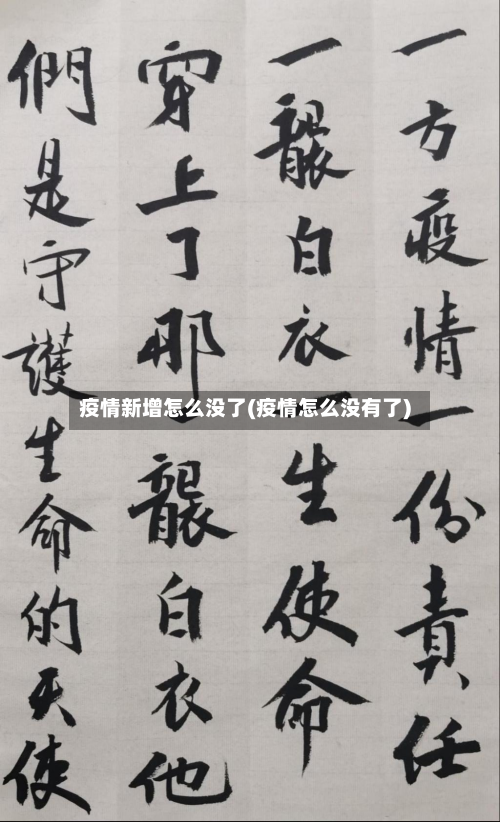 一方疫情一份責任
一襲白衣一生使命
穿上了那一襲白衣他
們是守護生命的天使
疫情新增怎么没了(疫情怎么没有了)